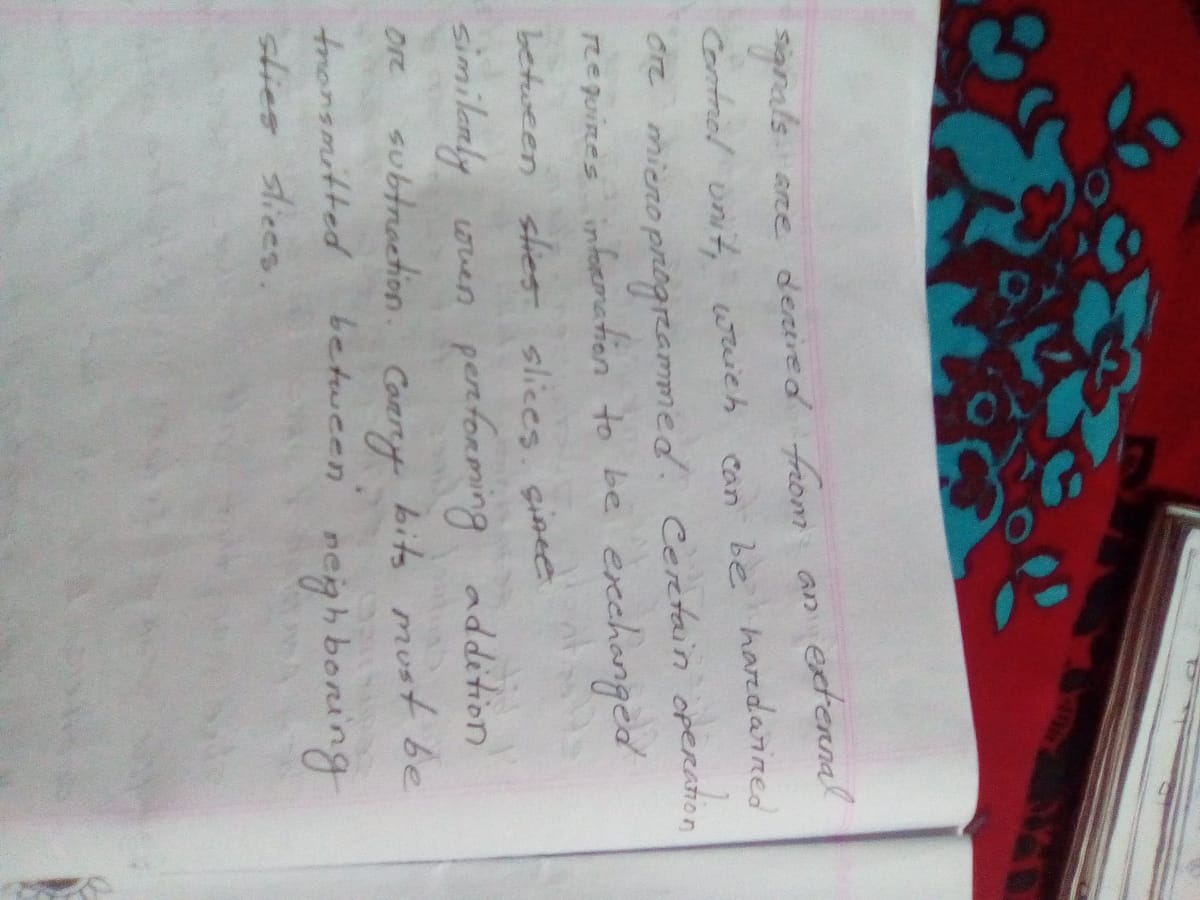 signals are derived from an external
Control unit, which can be hardwired
or microprogrammed. Certain operation
requires information to be exechanged
between slies slices. since
similarly when performing addition
or subtraction. Carry bits must be
transmitted between neighboring
slies slices.